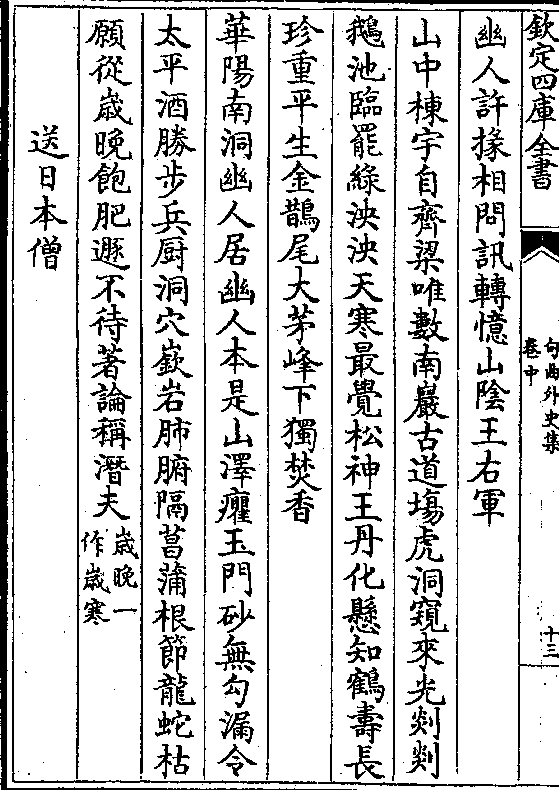 欽定四庫全書
句曲外史集
卷中
十三
幽人許掾相問訊轉憶山陰王右軍
山中棟宇自齊梁唯數南巖古道塲虎洞窺來光剡剡
鵝池臨罷綠泱泱天寒最覺松神王丹化懸知鶴壽長
珍重平生金鵲尾大茅峰下獨焚香
華陽南洞幽人居幽人本是山澤癯玉門砂無勾漏令
太平酒勝步兵厨洞穴嶔岩肺腑隔菖蒲根節龍蛇枯
願從歳晚飽肥遯不待著論稱潛夫
歳晚一
作歳寒
送日本僧